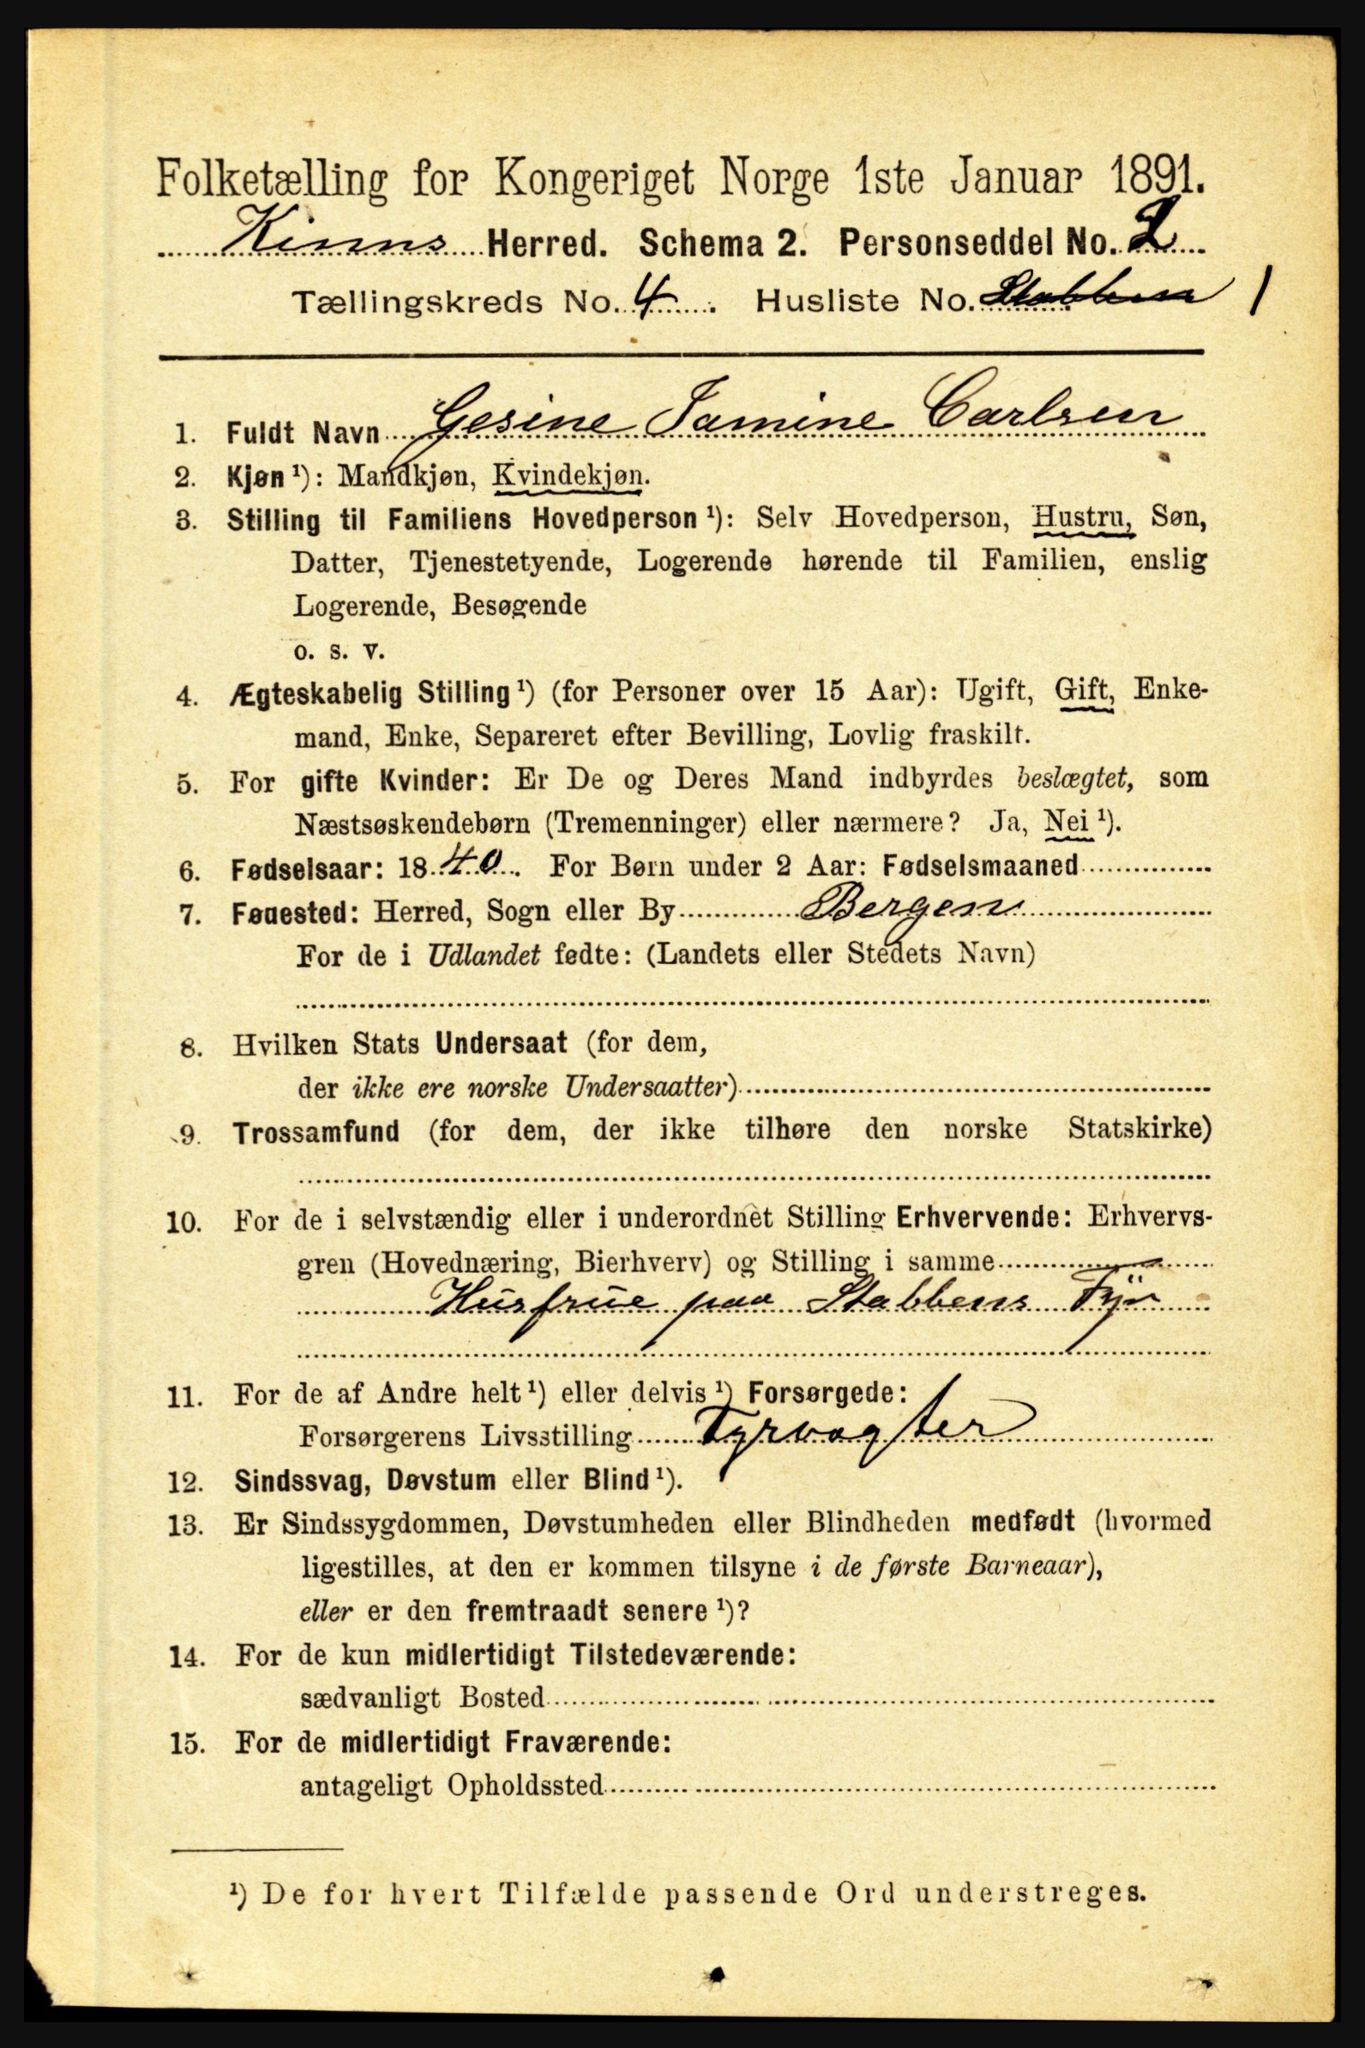 Folketælling for Kongeriget Norge 1ste Januar 1891.
Kinns Herred. Schema 2. Personseddel No. 2
Tællingskreds No. 4. Husliste No. Stabben 1
1. Fuldt Navn Gesine Jamine Carlsen
2. Kjøn ¹): Mandkjøn, Kvindekjøn.
3. Stilling til Familiens Hovedperson ¹): Selv Hovedperson, Hustru, Søn,
Datter, Tjenestetyende, Logerende hørende til Familien, enslig
Logerende, Besøgende
o. s. v.
4. Ægteskabelig Stilling ¹) (for Personer over 15 Aar): Ugift, Gift, Enke-
mand, Enke, Separeret efter Bevilling, Lovlig fraskilt.
5. For gifte Kvinder: Er De og Deres Mand indbyrdes beslægtet, som
Næstsøskendebørn (Tremenninger) eller nærmere? Ja, Nei ¹).
6. Fødselsaar: 1840. For Børn under 2 Aar: Fødselsmaaned
7. Føuested: Herred, Sogn eller By Bergen
For de i Udlandet fødte: (Landets eller Stedets Navn)
8. Hvilken Stats Undersaat (for dem,
der ikke ere norske Undersaatter)
9. Trossamfund (for dem, der ikke tilhøre den norske Statskirke)
10. For de i selvstændig eller i underordnet Stilling Erhvervende: Erhvervs-
gren (Hovednæring, Bierhverv) og Stilling i samme
Husfrue paa Stabbens Fyr
11. For de af Andre helt ¹) eller delvis ¹) Forsørgede:
Forsørgerens Livsstilling Fyrvogter
12. Sindssvag, Døvstum eller Blind ¹).
13. Er Sindssygdommen, Døvstumheden eller Blindheden medfødt (hvormed
ligestilles, at den er kommen tilsyne i de første Barneaar),
eller er den fremtraadt senere ¹)?
14. For de kun midlertidigt Tilstedeværende:
sædvanligt Bosted
15. For de midlertidigt Fraværende:
antageligt Opholdssted
¹) De for hvert Tilfælde passende Ord understreges.